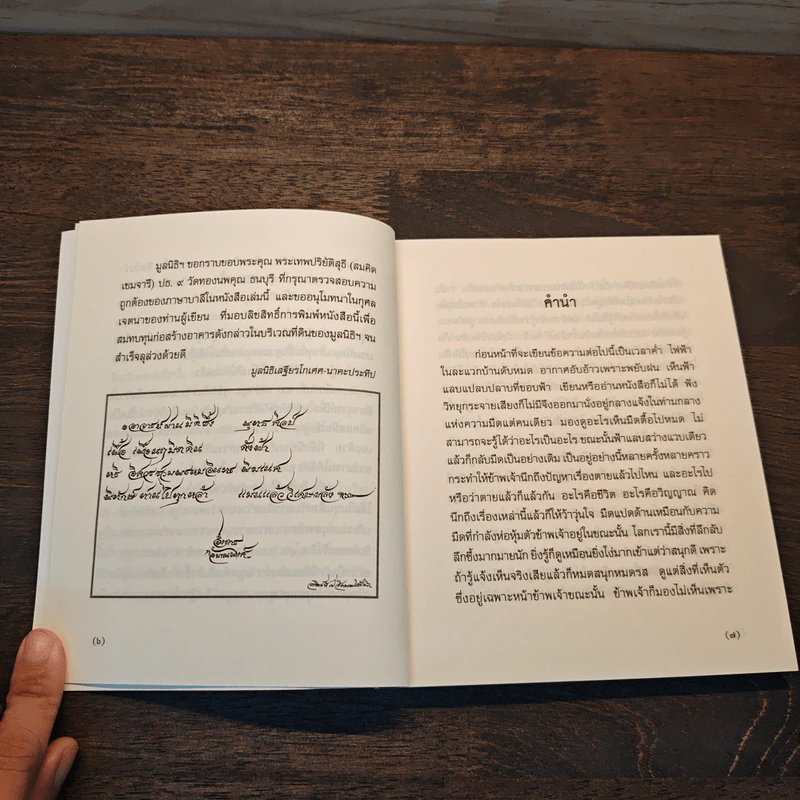 มูลนิธิฯ ขอกราบขอบพระคุณ พระเทพปริยัติสุธี (สมคิด
เขมจารี) ปธ. ๙ วัดทองนพคุณ ธนบุรี ที่กรุณาตรวจสอบความ
ถูกต้องของภาษาบาลีในหนังสือเล่มนี้ และขออนุโมทนาในกุศล
เจตนาของท่านผู้เขียน ที่มอบลิขสิทธิ์การพิมพ์หนังสือนี้เพื่อ
สมทบทุนก่อสร้างอาคารดังกล่าวในบริเวณที่ดินของมูลนิธิฯ จน
สำเร็จลุล่วงด้วยดี
มูลนิธิเสฐียรโกเศศ-นาคะประทีป
อังคาร
(๖)
คำนำ
ก่อนหน้าที่จะเขียนข้อความต่อไปนี้เป็นเวลาค่ำ ไฟฟ้า
ในละแวกบ้านดับหมด อากาศอับอ้าวเพราะพยับฝน เห็นฟ้า
แลบแปลบปลาบที่ขอบฟ้า เขียนหรืออ่านหนังสือก็ไม่ได้ ฟัง
วิทยุกระจายเสียงก็ไม่มีจึงออกมานั่งอยู่กลางแจ้งในท่ามกลาง
แห่งความมืดแต่คนเดียว มองดูอะไรเห็นมืดตื้อไปหมด ไม่
สามารถจะรู้ได้ว่าอะไรเป็นอะไร ขณะนั้นฟ้าแลบสว่างแวบเดียว
แล้วก็กลับมืดเป็นอย่างเดิม เป็นอยู่อย่างนี้หลายครั้งหลายคราว
กระทำให้ข้าพเจ้านึกถึงปัญหาเรื่องตายแล้วไปไหน และอะไรไป
หรือว่าตายแล้วก็แล้วกัน อะไรคือชีวิต อะไรคือวิญญาณ คิด
นึกถึงเรื่องเหล่านี้แล้วก็ให้ว้าวุ่นใจ มืดแปดด้านเหมือนกับความ
มืดที่กำลังห่อหุ้มตัวข้าพเจ้าอยู่ในขณะนั้น โลกเรานี้มีสิ่งที่ลึกลับ
ลึกซึ้งมากมายนัก ยิ่งรู้ก็ดูเหมือนยิ่งโง่มากเข้าแต่ว่าสนุกดี เพราะ
ถ้ารู้แจ้งเห็นจริงเสียแล้วก็หมดสนุกหมดรส ดูแต่สิ่งที่เห็นตัว
ซึ่งอยู่เฉพาะหน้าข้าพเจ้าขณะนั้น ข้าพเจ้าก็มองไม่เห็นเพราะ
(๗)